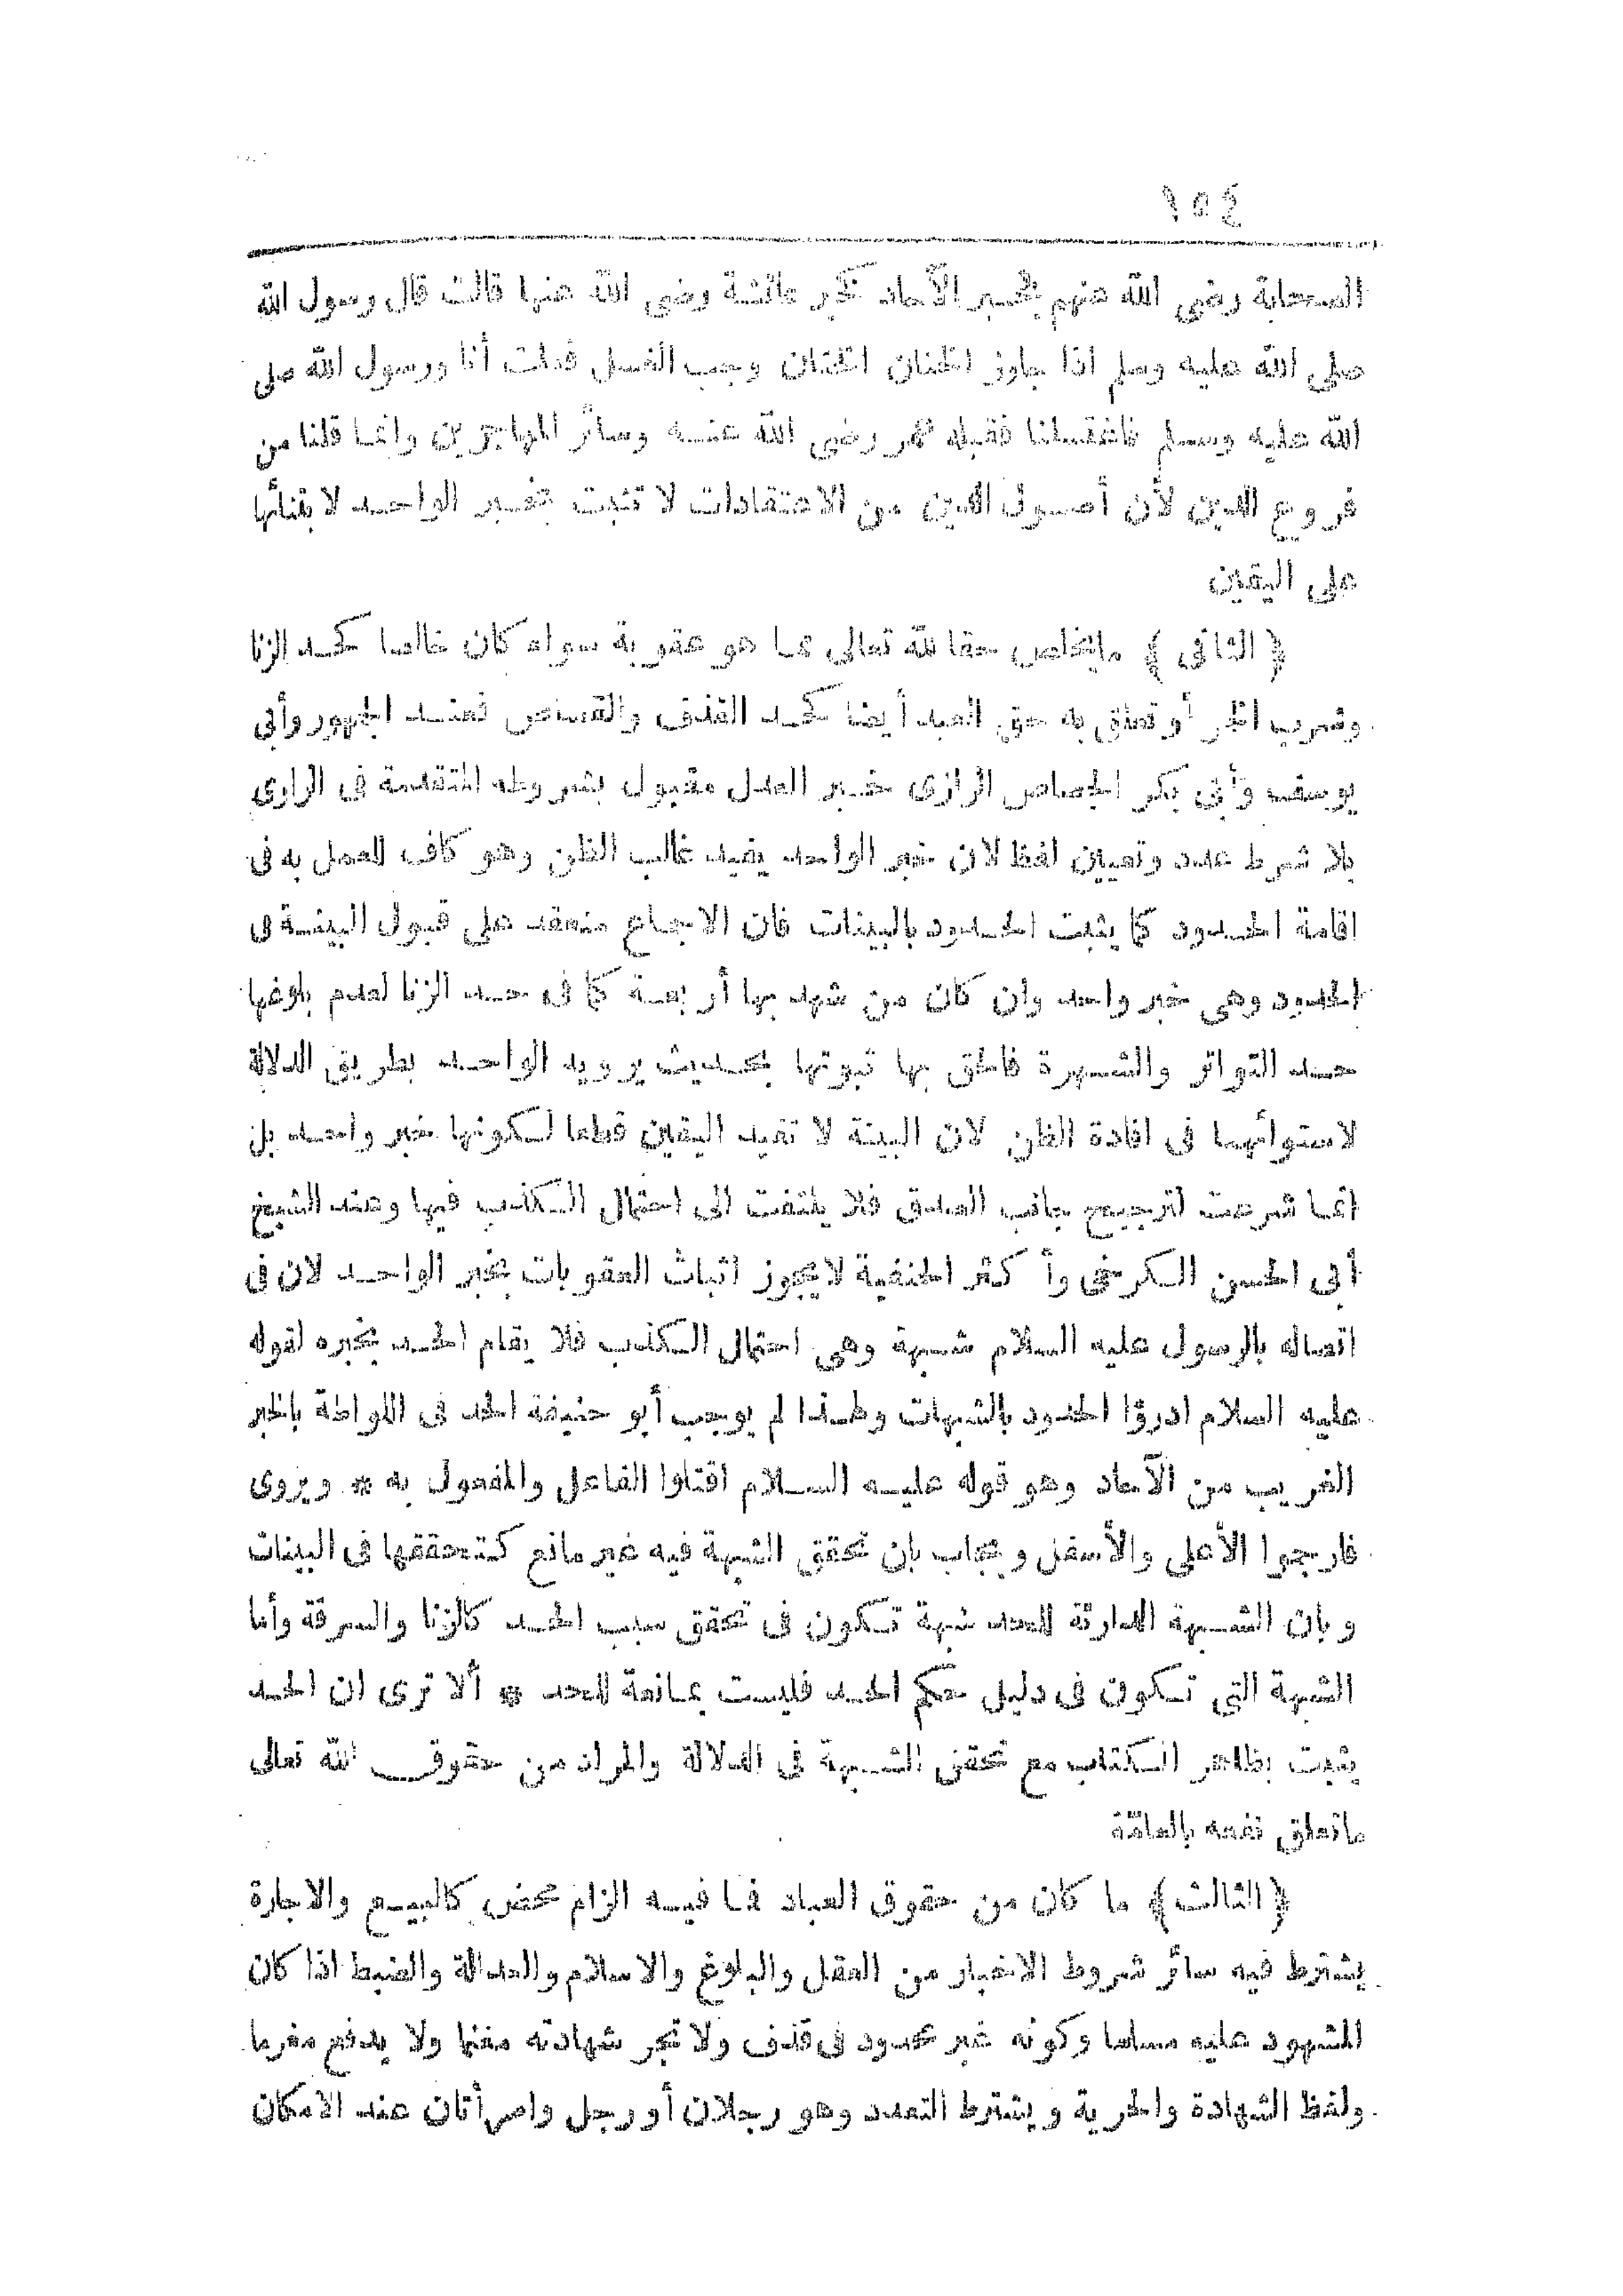 ١٥٤
الصحابة رضى الله عنهم بخبر الآحاد كخبر عائشة رضى الله عنها قالت قال رسول الله
صلى الله عليه وسلم اذا جاوز الختان الختان وجب الغسل فعلت أنا ورسول الله صلى
الله عليه وسلم فاغتسلنا فقبله عمر رضى الله عنه وسائر المهاجرين وانما قلنا من
فروع الدين لأن أصول الدين من الاعتقادات لا تثبت بخبر الواحد لابتنائها
على اليقين
﴿ الثانى ﴾ ما يتخلص حقا لله تعالى مما هو عقوبة سواء كان خالصا كحد الزنا
وشرب الخمر أو تعلق به حق العبد أيضا كحد القذف والقصاص فعند الجمهور وأبى
يوسف وأبى بكر الجصاص الرازى خبر العدل مقبول بشروطه المتقدمة فى الراوى
بلا شرط عدد وتعيين لفظ لان خبر الواحد يفيد غالب الظن وهو كاف للعمل به فى
اقامة الحدود كما يثبت الحدود بالبينات فان الاجماع منعقد على قبول البينة فى
الحدود وهى خبر واحد وان كان من شهد بها أربعة كما فى حد الزنا لعدم بلوغها
حد التواتر والشهرة فالحق بها ثبوتها بحديث يرويه الواحد بطريق الدلالة
لاستوائهما فى افادة الظن لان البينة لا تفيد اليقين قطعا لكونها خبر واحد بل
انما شرعت لترجيح جانب الصدق فلا يلتفت الى احتمال الكذب فيها وعند الشيخ
أبى الحسن الكرخى وأكثر الحنفية لا يجوز اثبات العقوبات بخبر الواحد لان فى
اتصاله بالرسول عليه السلام شبهة وهى احتمال الكذب فلا يقام الحد بخبره لقوله
عليه السلام ادرؤا الحدود بالشبهات ولهذا لم يوجب أبو حنيفة الحد فى اللواطة بالخبر
الغريب من الآحاد وهو قوله عليه السلام اقتلوا الفاعل والمفعول به * ويروى
فارجموا الأعلى والأسفل ويجاب بان تحقق الشبهة فيه غير مانع كتحققها فى البينات
وبان الشبهة الدارئة للحد شبهة تكون فى تحقق سبب الحد كالزنا والسرقة وأما
الشبهة التى تكون فى دليل حكم الحد فليست بمانعة للحد * ألا ترى ان الحد
يثبت بظاهر الكتاب مع تحقق الشبهة فى الدلالة والمراد من حقوق الله تعالى
ما تعلق نفعه بالعامّة
﴿ الثالث ﴾ ما كان من حقوق العباد فما فيه الزام محض كالبيع والاجارة
يشترط فيه سائر شروط الاخبار من العقل والبلوغ والاسلام والعدالة والضبط اذا كان
المشهود عليه مسلما وكونه غير محدود فى قذف ولا تجر شهادته مغنما ولا يدفع مغرما
ولفظ الشهادة والحرية ويشترط التعدد وهو رجلان أو رجل وامرأتان عند الامكان